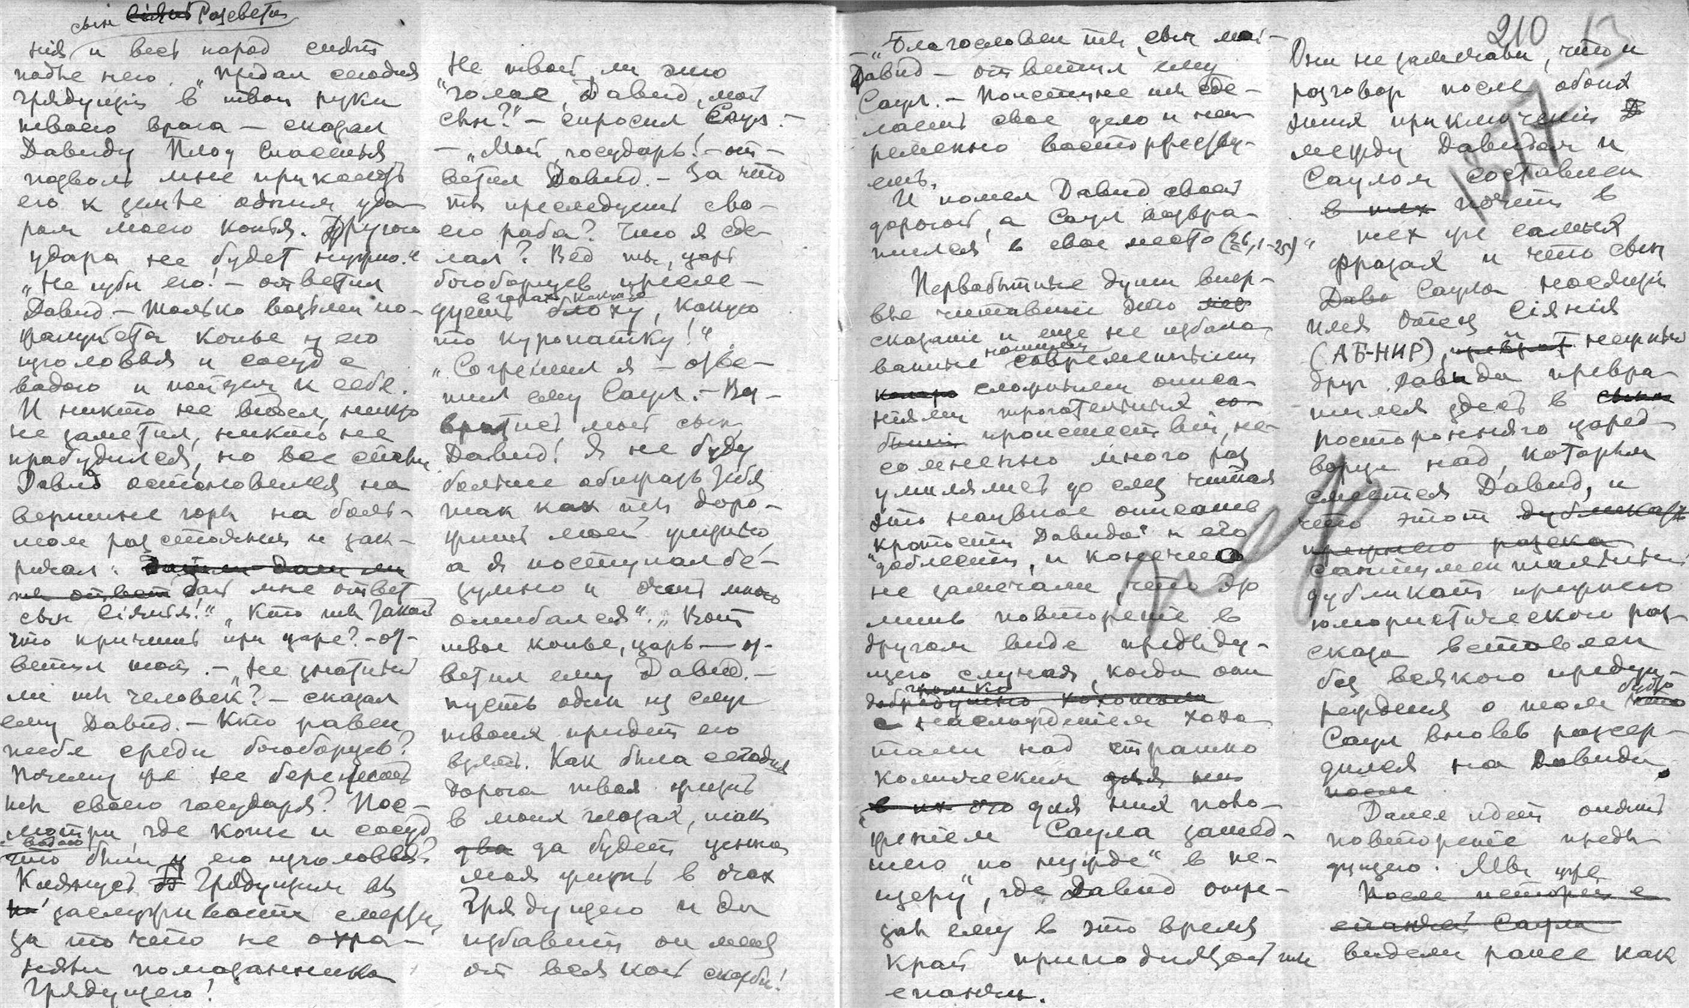 сын сіянія Разсвета
нія и весь народ спятъ
подле него. „Предал сегодня
Грядущій в твои руки
твоего врага — сказал
Давиду Плод Спасенья
позволь мне приколоть
его к земле одним уда-
ром моего копья. Другого
удара не будет нужно."
„Не губи его! — ответил
Давид — только возьмем по-
копье у его
изголовья и сосуд с
водою и пойдем к себе.
И никто не видел, никто
не заметил, никто не
пробудился, но все спали.
Давид остановился на
вершине горы на боль-
шом разстояньи и зак-
ричал:
дай мне ответ
сын Сіянія!" „Кто ты такой
что кричишь при царе? — от-
ветил тот. — „Не знатный
ли ты человек? — сказал
ему Давид. — Кто равен
тебе среди богоборцев?
Почему же не бережешь
ты своего государя? Пос-
мотри, где копье и сосуд
с водою
что были у его изголовья?
Клянусь Грядущим вы
заслуживаете смерти
за то что не охра-
няли помазанника
Грядущего!
Не твой ли это
„голос, Давид, мой
сын?" — спросил Саул. —
— „Мой, государь! — от-
ветил Давид. — За что
ты преследуешь сво-
его раба? Что я сде-
лал? Ведь ты, царь
богоборцев пресле-
в горах какую
дуешь блоху, какую
то куропатку!"
„Согрешил я — отве-
тил ему Саул. — Во-
вратись мой сын
Давид! Я не буду
больше обижать тебя
так как ты доро-
жишь моей жизнью
а я поступал бе-
зумно и очень много
ошибался". „Вот
твое копье, царь — от-
ветил ему Давид. —
пусть один из слуг
твоих придет его
взять. Как была сегодня
дорога твоя жизнь
в моих глазах, так
да будет ценна
моя жизнь в очах
Грядущего и да
избавит он меня
от всякой скорби!
— „Благословен ты, сын мой —
Давид — ответил ему
Саул. — Поистине ты сде-
лаешь свое дело и неп-
ременно восторжеству-
ешь.
И пошел Давид своей
дорогой, а Саул возвра-
тился в свое место (26,1-25)"
Первобытные души впер-
вые читавшіе это
сказаніе и еще не избало-
ванные нашими современными
сложными описа-
ніями трогательных со-
бытій происшествій, не-
сомненно много раз
умилялись до слез читая
это наувное описаніе
„кротости Давида" и его
„доблести, и конечно
не замечали, что это
лишь повтореніе в
другом виде предыду-
щего случая, когда они
громко
добродушно хохотали
с наслажденіем хохо-
тали над страшно
комическим для них
в их
для них поло-
женіем Саула зашед-
шего „по нужде" в пе-
щеру", где Давид отре-
зал ему в это время
край приподнятой им
епанчи.
210
Они не замечали, что и
разговор после обоих
этих приключеній
между Давидом и
Саулом составлен
в тех почти в
тех же самых
фразах и что сын
Саула носящій
имя Отец Сіянія
(АБ-НИР), нежный
друг Давида превра-
тился здесь в
посторонняго царед-
ворца над которым
смеется Давид, и
что этот дубликат
прежнего разсказа
сантиментальный
дубликат прежнего
юмористическаго раз-
сказа вставлен
без всякого предуп-
режденія о том будто
Саул вновь разсер-
дился на Давида.
после
Далее идет опять
повтореніе преды-
дущего. Мы уже
После исторіи с
епанчей Саула
видели ранее как